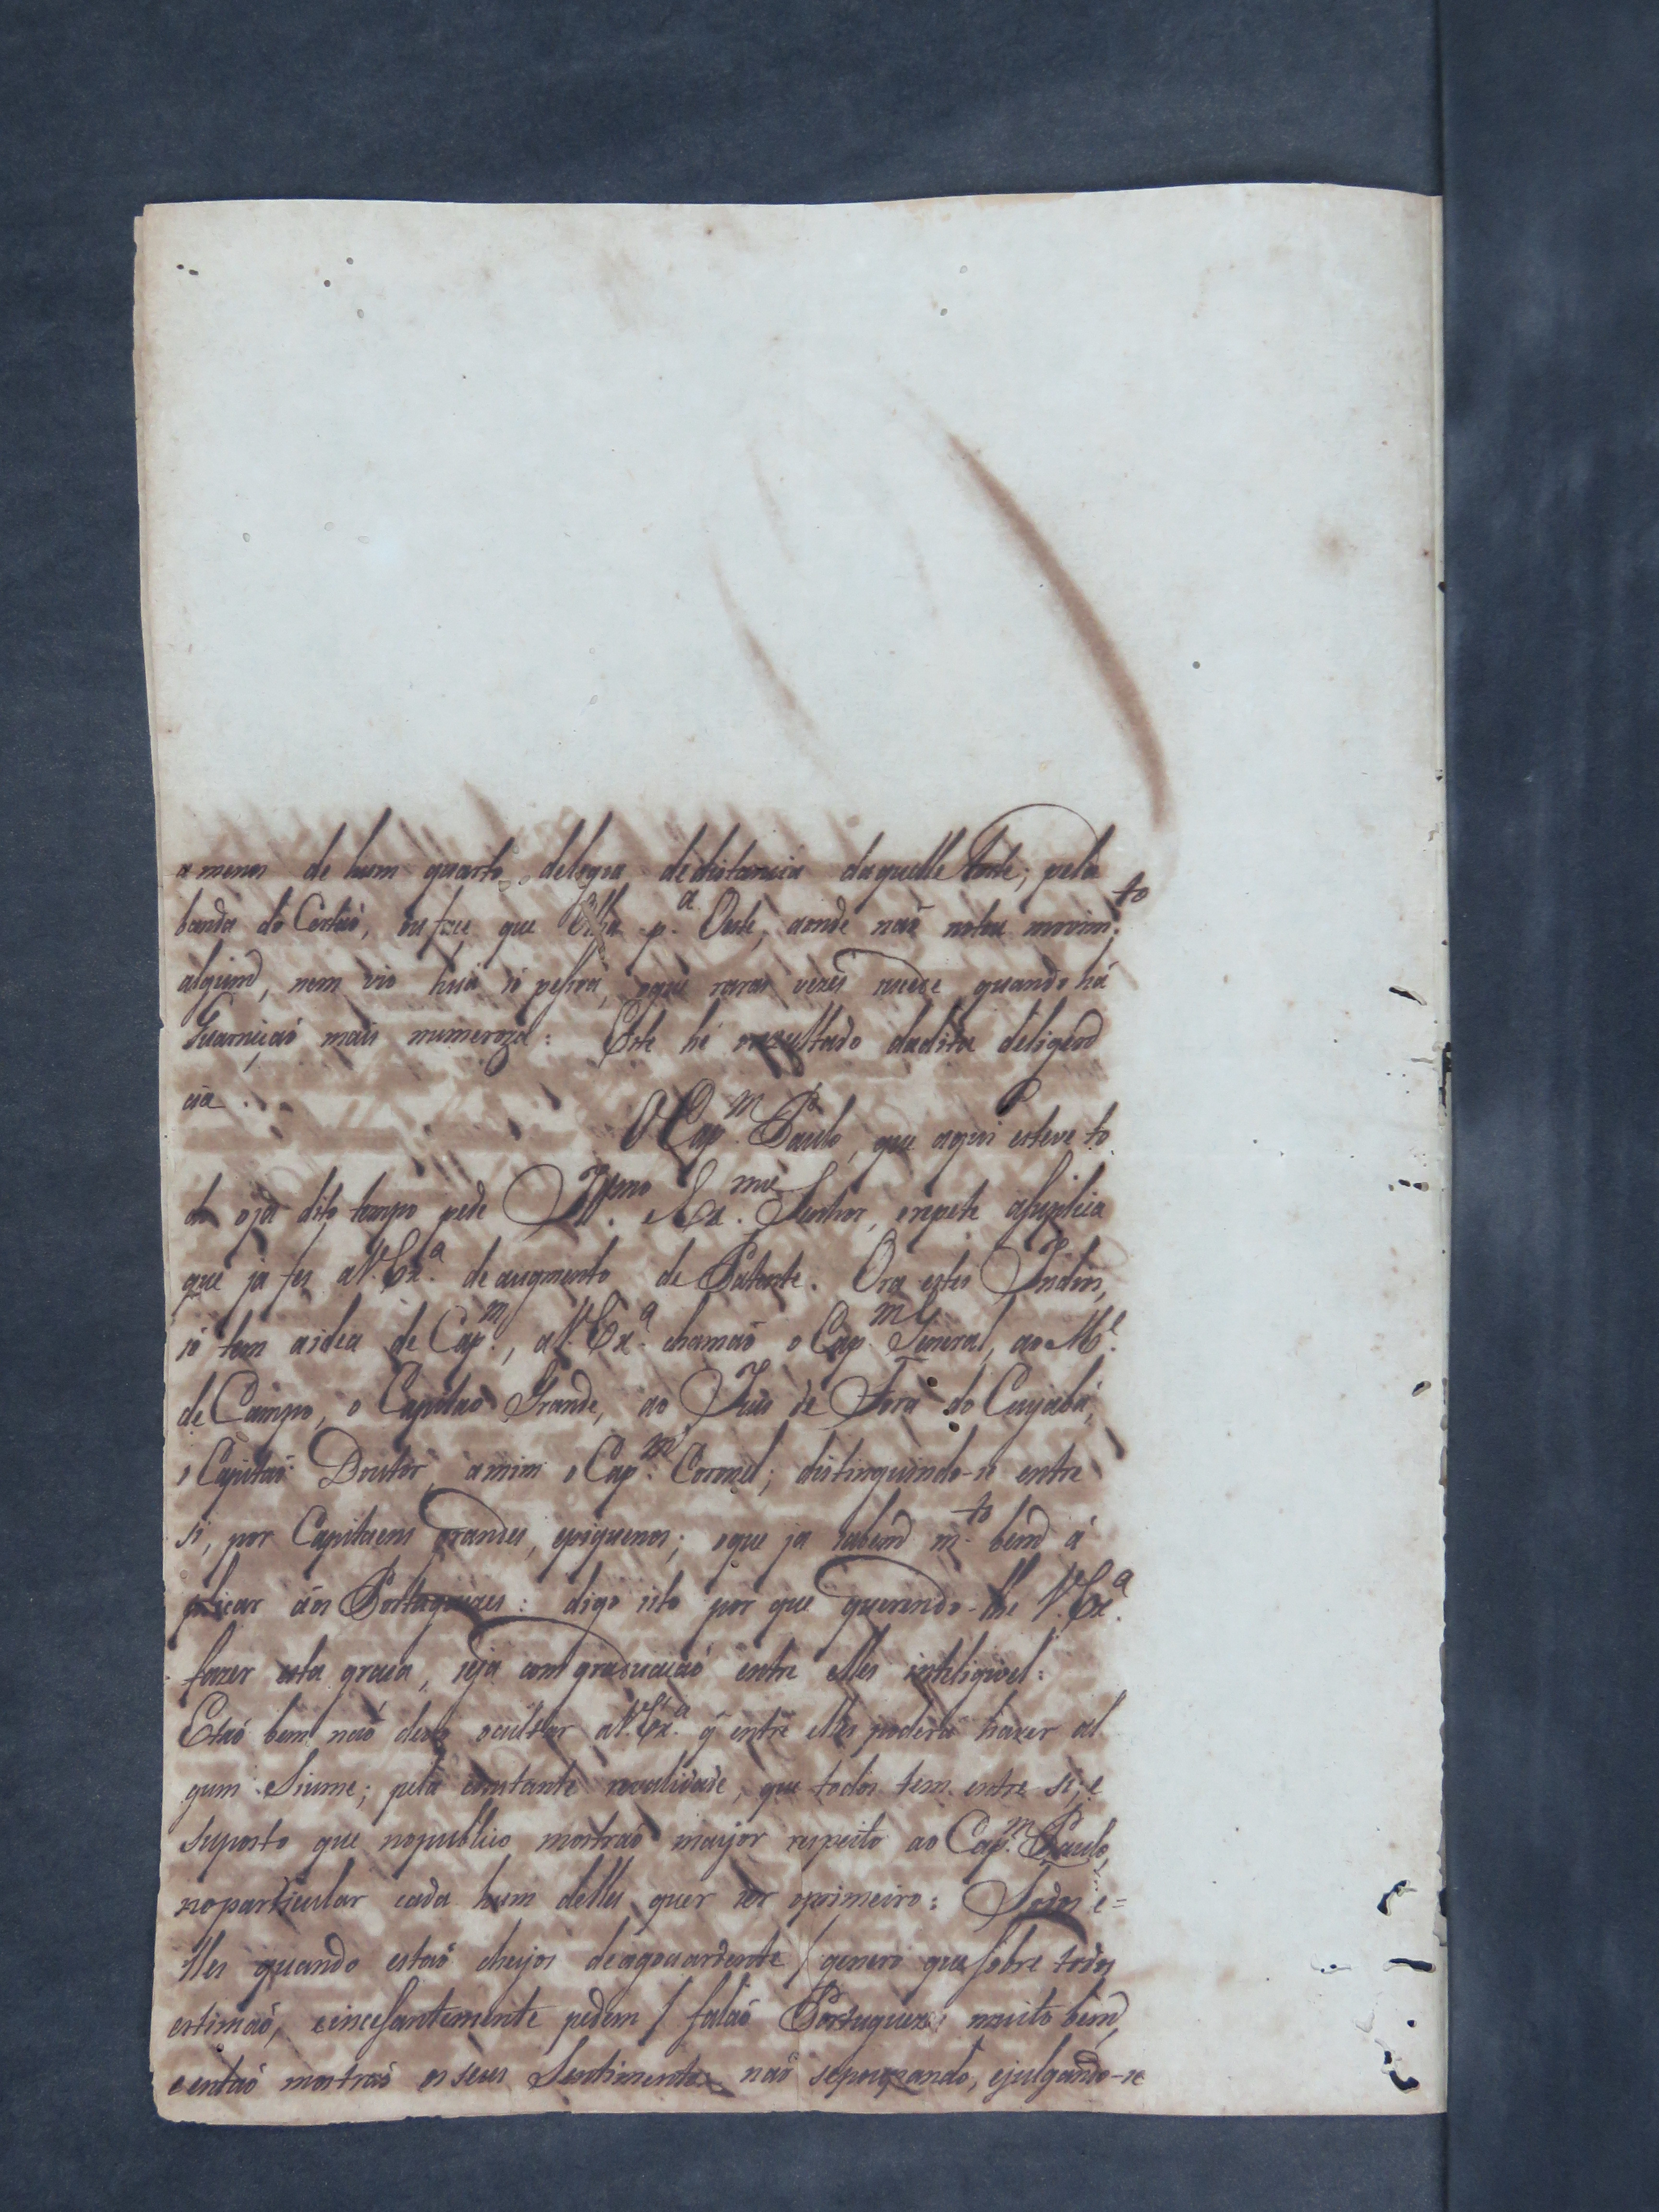 a menos de hum quarto delegoa dedistancia daquelle Forte; pela
banda do Certaõ, ou face que Olha p.ª Oeste, aonde naõ notou movim.to
algum, nem vio huã só pessoa, oque raras vezes sucede quando há
Guarniçaõ mais numeroza: Este hé orezultado dadita deligen
cia.
O Cap.m Paulo, que aqui esteve to
do oja dito tempo pede Ill.mo e Ex.mo Senhor, erepete asuplica
que ja fez aV. Ex.ª de augmento de Patente. Ora estes Indios,
só tem aidea de Cap.m, aV. Ex.ª chamaõ o Cap.m General, ao M.e
de Campo, o Capitaõ Grande, ao Juis de Fora do Cuyabá,
o Capitaõ Doutor, amim o Cap.m Coronel; distinguindo-se entre
si, por Capitaens grandes, epiquenos; oque ja sabem m.to bem á
plicar áos Portuguezes: digo isto por que querendo-lhe V. Ex.ª
fazer esta graça, seja com graduaçaõ entre elles inteligivel:
Etaõ bem naõ devo ocultar aV. Ex.ª q̃ entre elles poderá haver al
gum Siume; pela constante rivalidade, que todos tem entre si; e
suposto que nopublico mostraõ mayor respeito ao Cap.m Paulo,
noparticular cada hum delles quer ser oprimeiro: Todos e=
lles quando estaõ cheyos deagoaardente / genero que sobre todos
estimaõ, eincesantemente pedem / falaõ Portuguez muito bem,
e entaõ mostraõ os seus Sentimentos naõ sepoupando, ejulgando-se